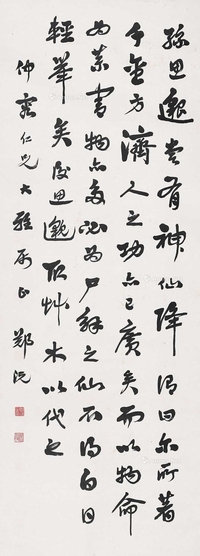 孫思邈嘗有神仙降謂曰爾所著
千金方濟人之功亦已廣矣而以物命
為藥害物亦多必為尸解之仙不得白日
輕舉矣後思邈取草木以代之
仲 仁兄大雅 正 鄭沅